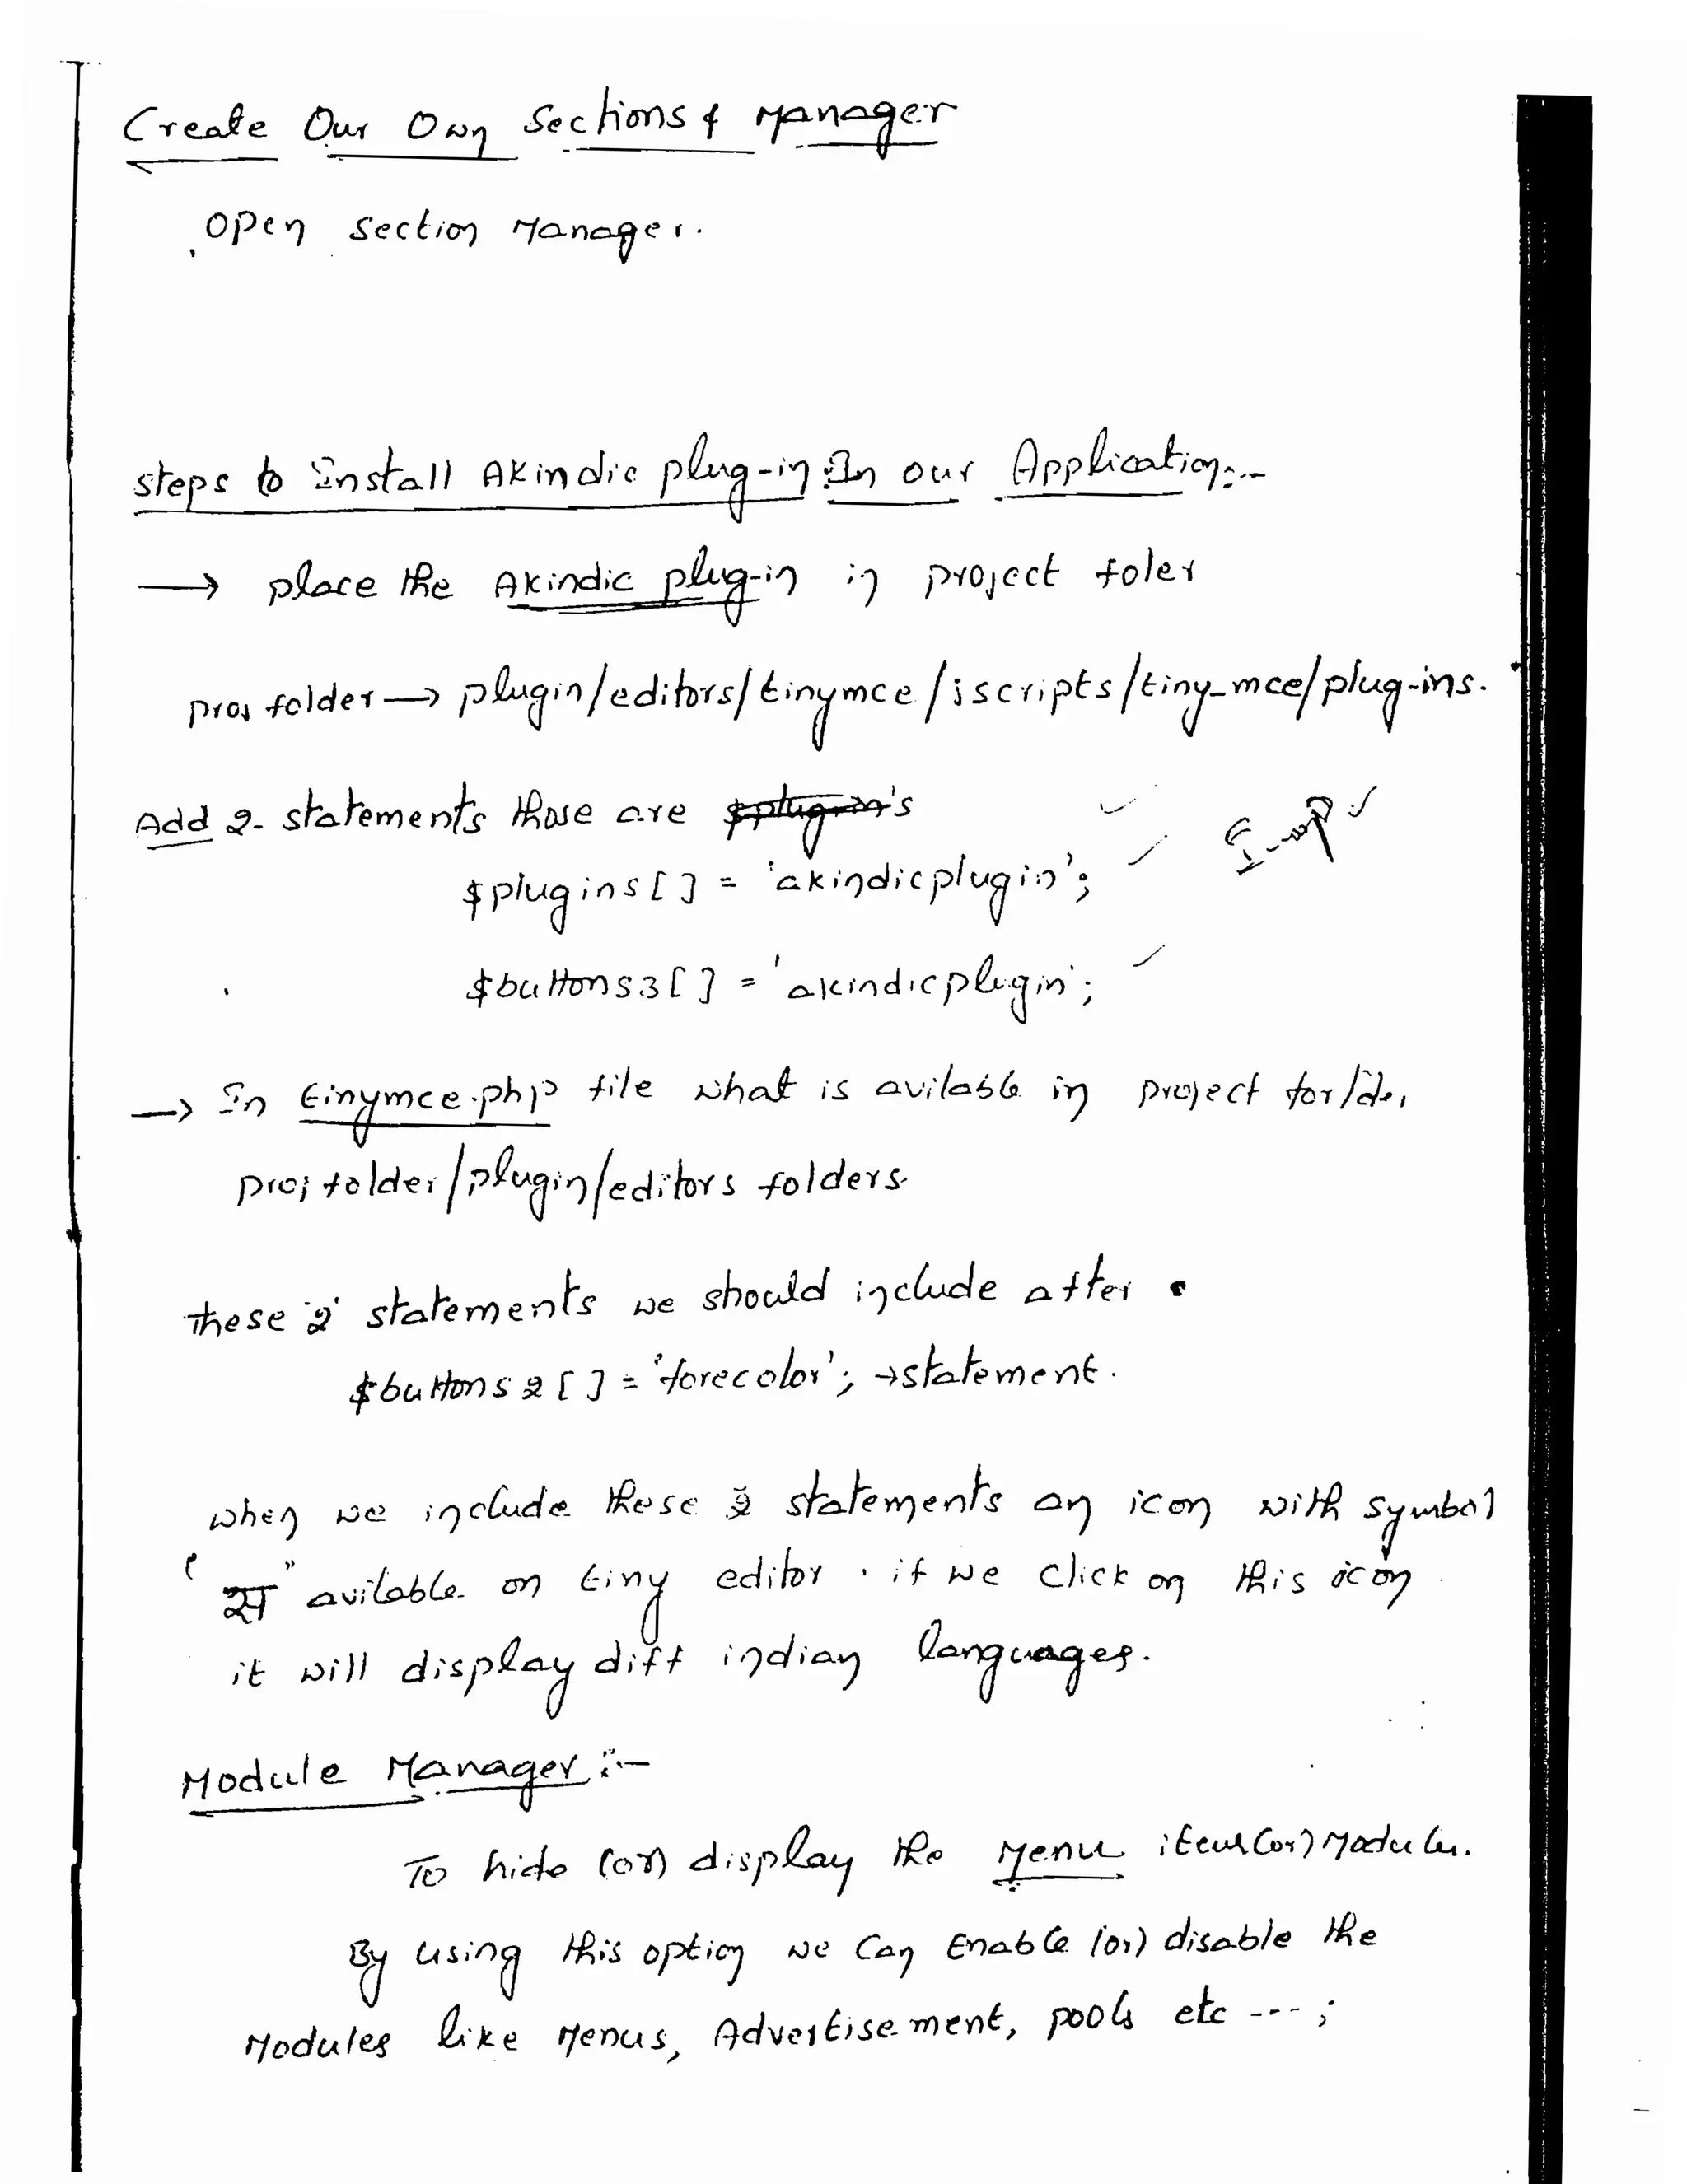 Create Our Own Sections & Manager
open section Manager.
steps to Install AKindic plug-in In our Application:-
→ place the AKindic plug-in in project foler
proj folder → plugin/editors/tinymce/jscripts/tiny_mce/plug-ins.
Add 2- statements those are $plug-in's
$plugins[] = 'akindicplugin'; Imp
$buttons3[] = 'akindicplugin';
→ In tinymce.php file what is avilable in project forlder
proj folder/plugin/editors folders.
These '2' statements we should include after
$buttons2[] = 'forecolor'; → statement.
when we include these 2 statements an icon with symbol
"स" avilable on tiny editor. if we click on this icon
it will display diff indian languages.
Module Manager:-
To hide (or) display the Menu items (or) Modules.
By using this option we can Enable (or) disable the
Modules like Menus, Advertisement, pools etc ---;